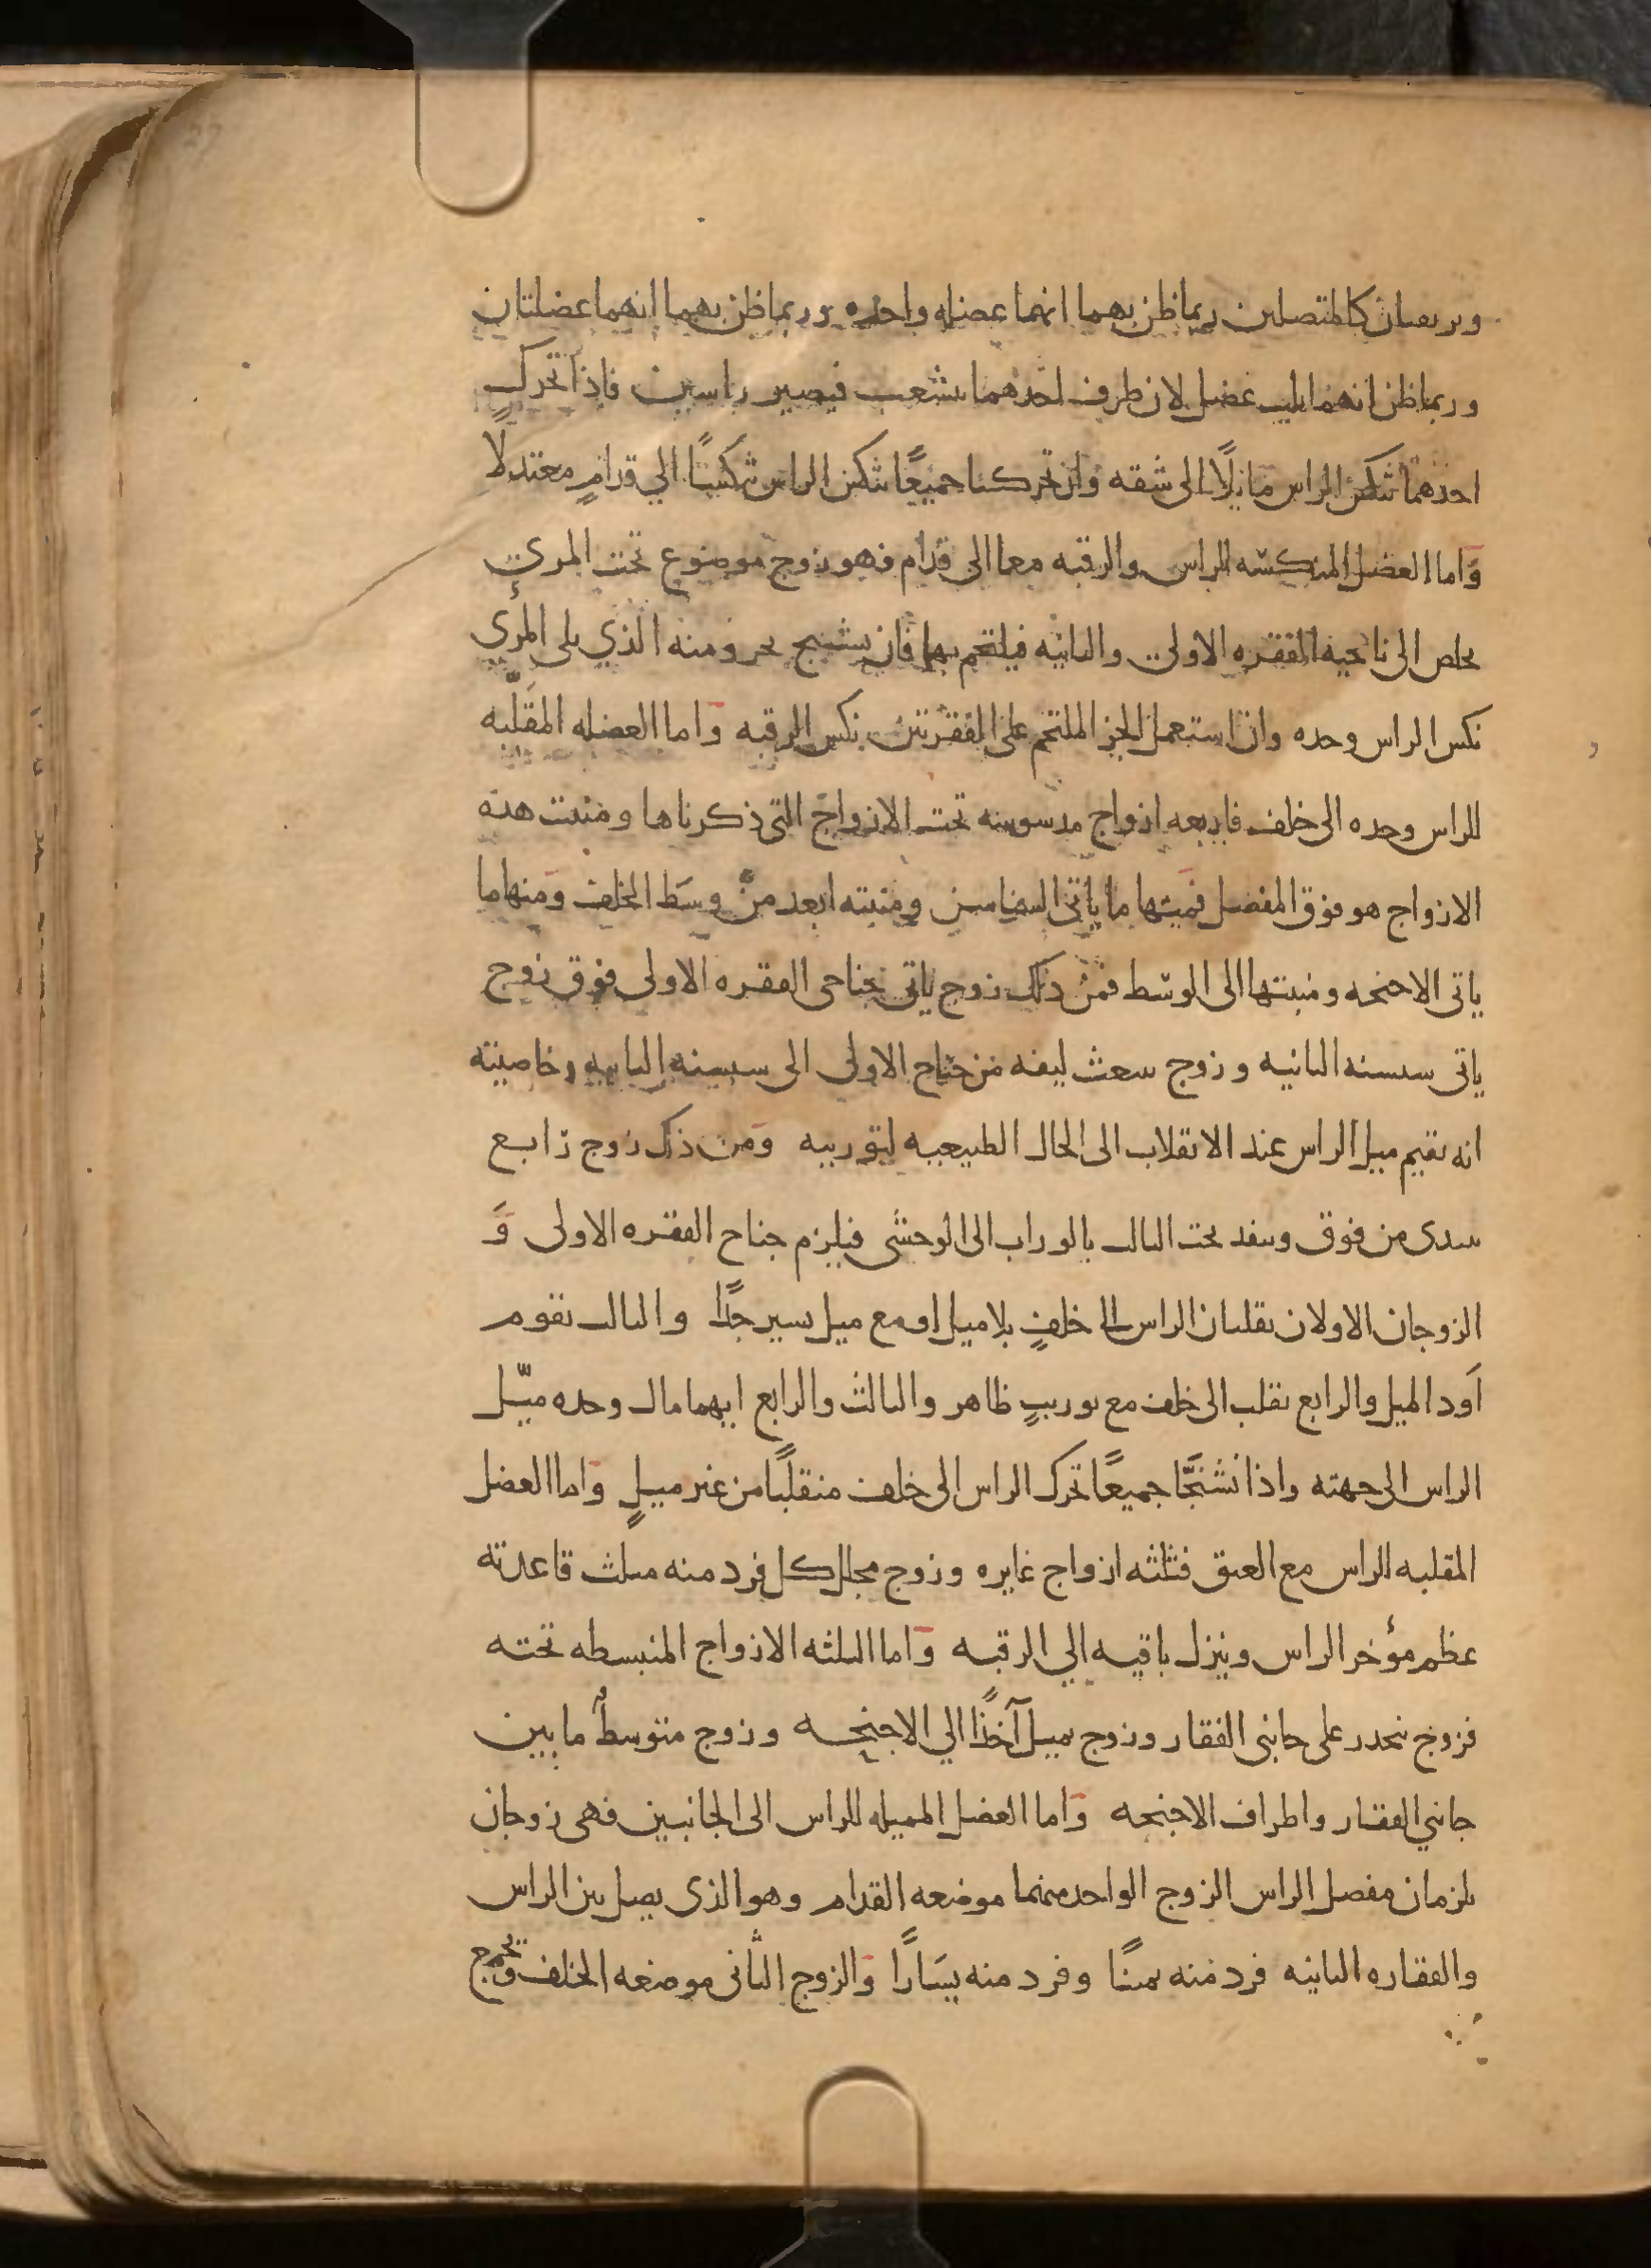 ويرتقيان كالمتصلين ربما ظن بهما انهما عضله واحده وربما ظن بهما انهما عضلتان
وربما ظن انهما ثلث عضل لان طرف احدهما يتشعب فيصير راسين فاذا تحرك
احدهما تنكس الراس مائلًا الى شقه وان تحركتا جميعًا تنكس الراس تنكسًا الي قدامٍ معتدلًا
وَاما العضل المنكسه للراس والرقبه معا الى قدام فهو زوج موضوع تحت المري
يخلص الى ناحيه الفقره الاولى والثانيه فيلتحم بهما فان تشنج بجزو منه الذي يلى المرئ
نكس الراس وحده وان استعمل الجز الملتحم على الفقرتين نكس الرقبه وَاما العضله المقَلّبه
للراس وحده الى خلف فاربعه ازواج مدسوسه تحت الازواج التى ذكرناها ومنبت هذه
الازواج هو فوق المفصل فمنها ما ياتى السناسن ومنبته ابعد من وسَط الخلف وَمنها ما
ياتى الاجنحه ومنبتها الى الوسط فمن ذلك زوج ياتى جناحى الفقره الاولى فوق زوج
ياتى سنسنه الثانيه وزوج ينبعث ليفه من جناح الاولى الى سنسنه الثانيه وخاصيته
انه يقيم ميل الراس عند الانقلاب الى الحال الطبيعيه لتوريبه وَمن ذلك زوج رابع
يبتدى من فوق وينفذ تحت الثالث بالوراب الى الوحشى فيلزم جناح الفقره الاولى وَ
الزوجان الاولان يقلبان الراس الى خلفٍ بلا ميل او مع ميل يسير جدًا والثالث يقوم
اَود الميل والرابع يقلب الى خلف مع توريبٍ ظاهر والثالث والرابع ايهما مال وحده ميّل
الراس الى جهته واذا تشنجَّا جميعًا تحرك الراس الى خلف منقلبًا من غير ميلٍ وَاما العضل
المقلبه للراس مع العنق فثلثه ازواج غايره وزوج مجلل كل فرد منه مثلث قاعدته
عظم مؤخر الراس وينزل باقيه الي الرقبه وَاما الثلثه الازواج المنبسطه تحته
فزوج ينحدر على جانبى الفقار وزوج يميل آخذًا الي الاجنحه وزوج متوسطٌ ما بين
جانبي الفقار واطراف الاجنحه وَاما العضل المميله للراس الى الجانبين فهى زوجان
يلزمان مفصل الراس الزوج الواحد منهما موضعه القدام وهو الذى يصل بين الراس
والفقاره الثانيه فرد منه يمينًا وفرد منه يسَارًا وَالزوج الثانى موضعه الخلف ويجمع